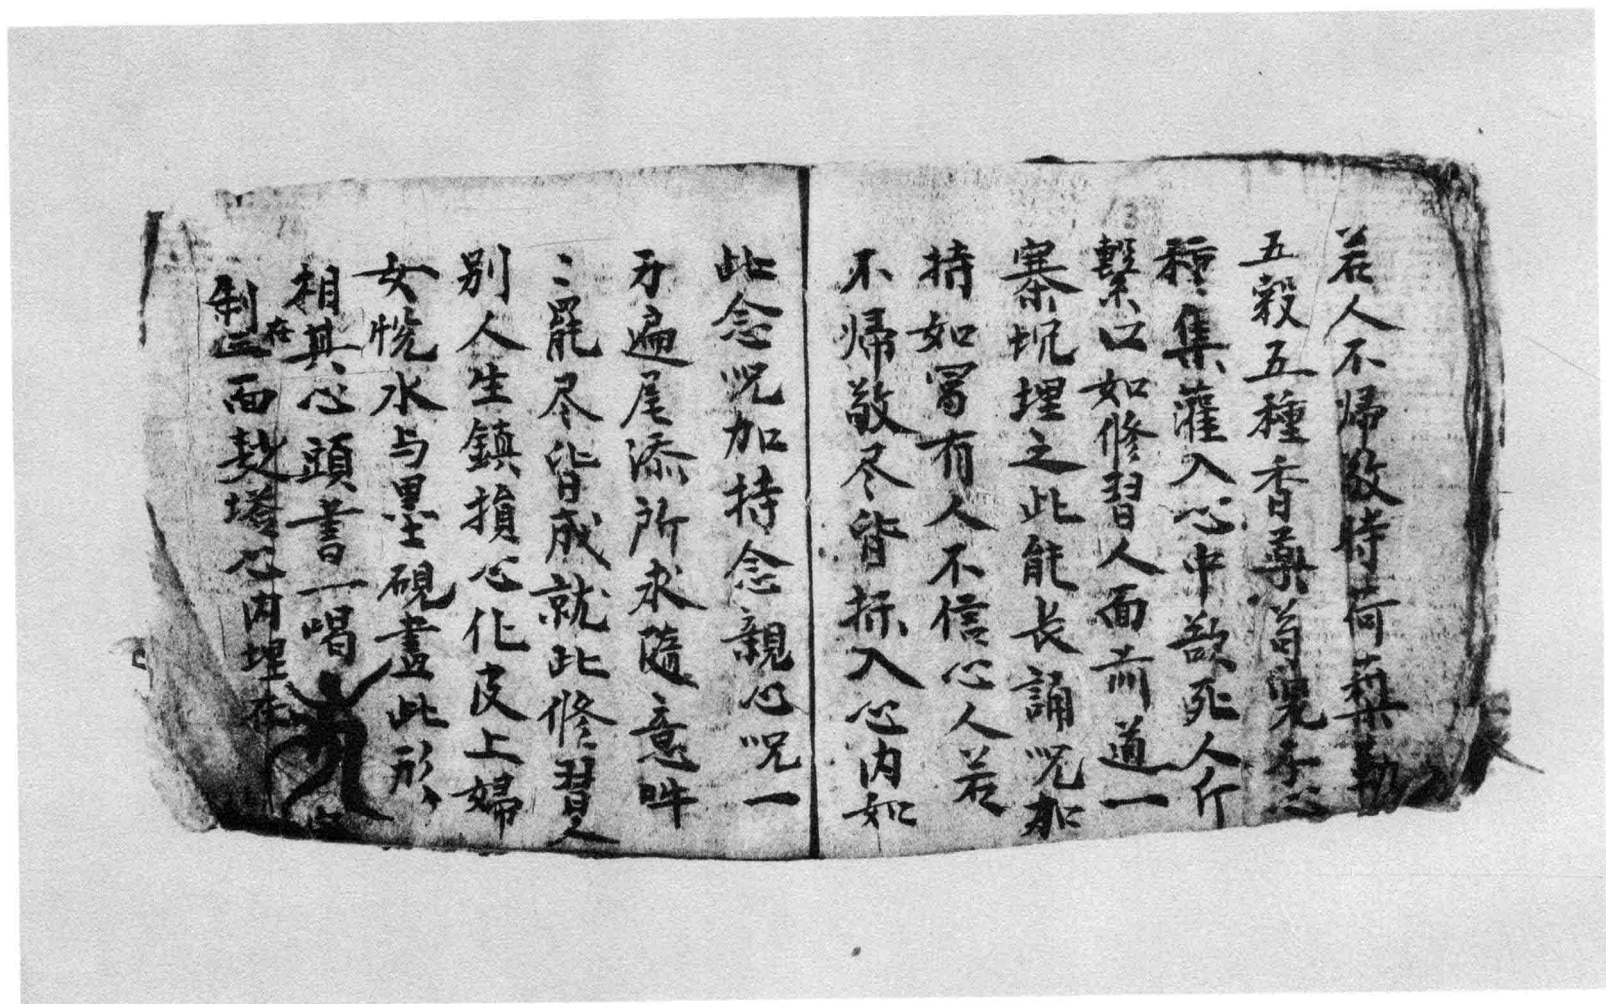 若人不歸敬時荷葉勒
五穀五種香藥
種集灌入心中歃死人斤
繫口如修習人面前道一
寨坑埋之此能长誦呪加
持如富有人不信心人若
不歸敬尽皆拆入心内如
此念呪加持念親心呪一
万遍尾添所求随意吽
〻罷尽皆成就此修習人
别人生鎮損心化皮上婦
女恍水与墨硯畫此形
相其心頭書一喝
在
面 塔心内埋